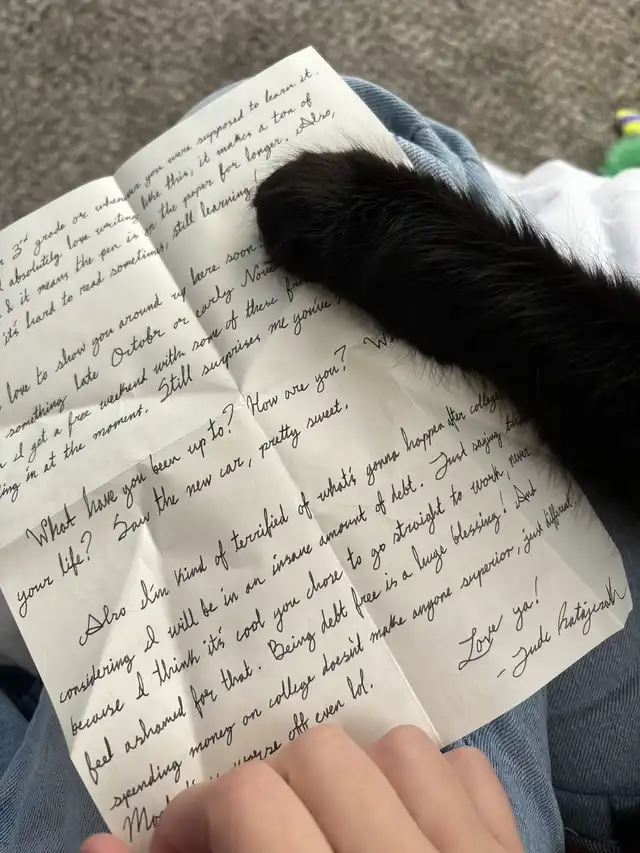 3rd grade or whenever you were supposed to learn it.
absolutely love writing like this, it makes a ton of
& it means the pen is on the paper for longer. Also,
it's hard to read sometimes, still learning!
love to show you around up here soon!
something late October or early Nove
I get a free weekend with some of these
ing in at the moment. Still surprises me you've
What have you been up to? How are you?
your life? Saw the new car, pretty sweet.
Also I'm kind of terrified of what's gonna happen after college
considering I will be in an insane amount of debt. Just saying
because I think it's cool you chose to go straight to work, never
feel ashamed for that. Being debt free is a huge blessing! And
spending money on college doesn't make anyone superior, just different.
worse off even lol.
Love ya!
- Jude Ratajczak